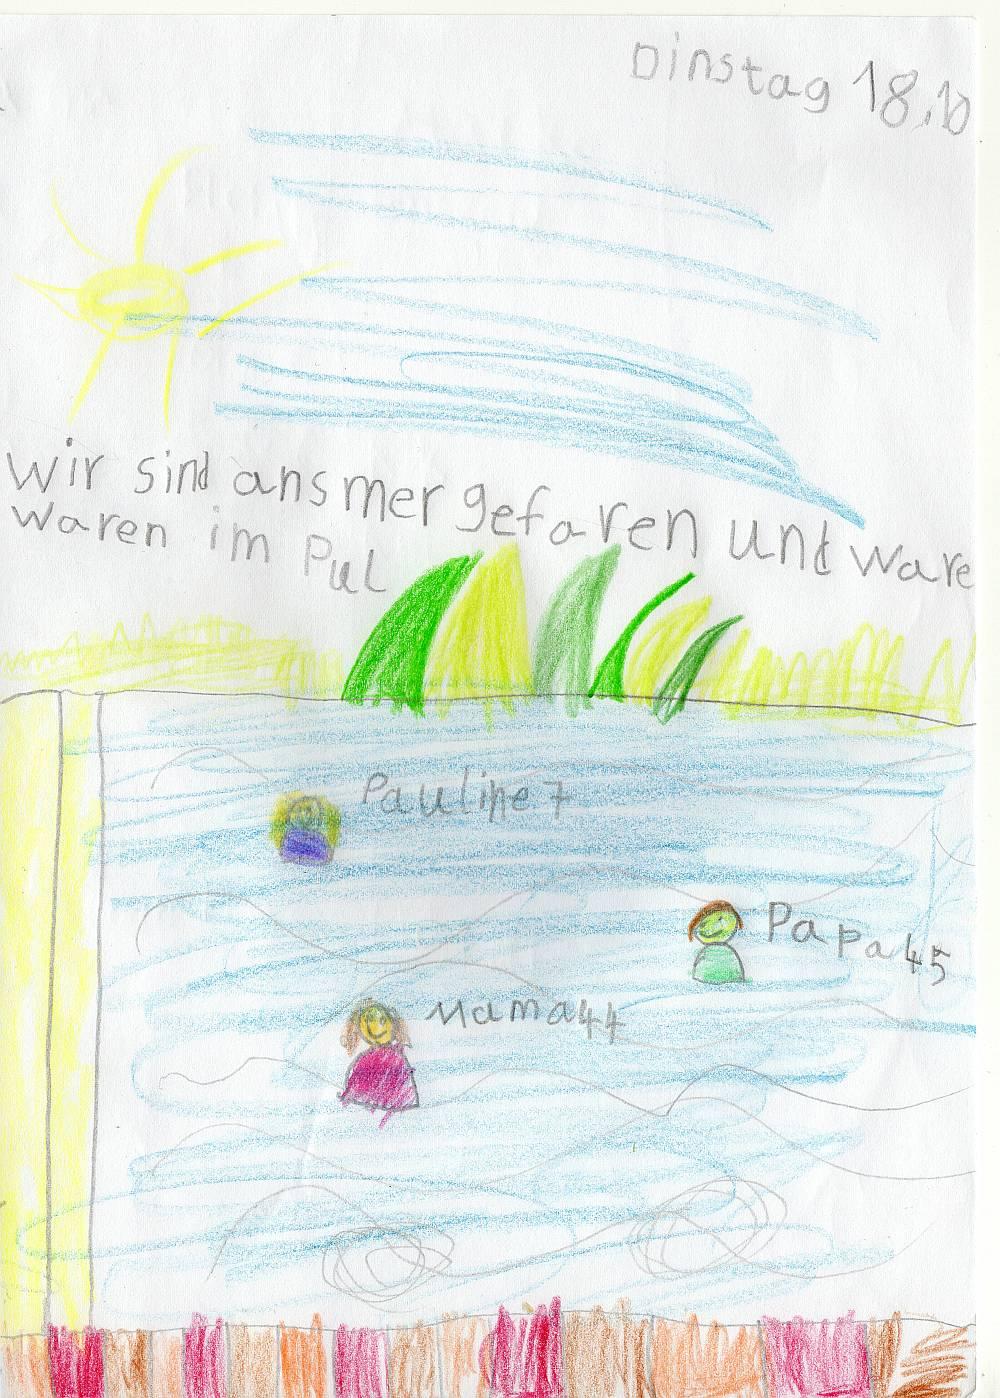 Dinstag 18.10
wir sind ans mer gefaren und ware
waren im Pul
Pauline 7
Papa 45
Mama 44